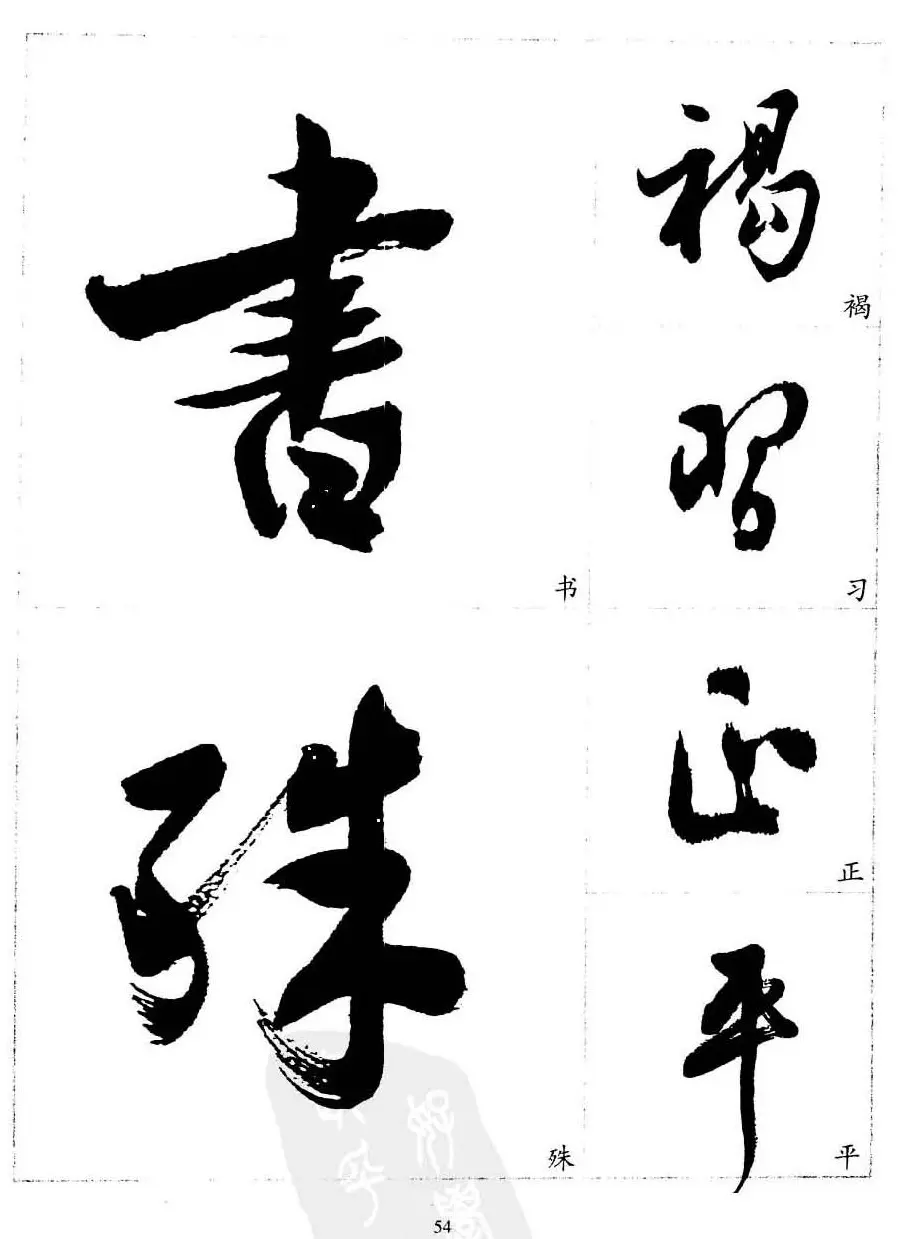 書
书
殊
殊
褐
褐
習
习
正
正
平
平
54